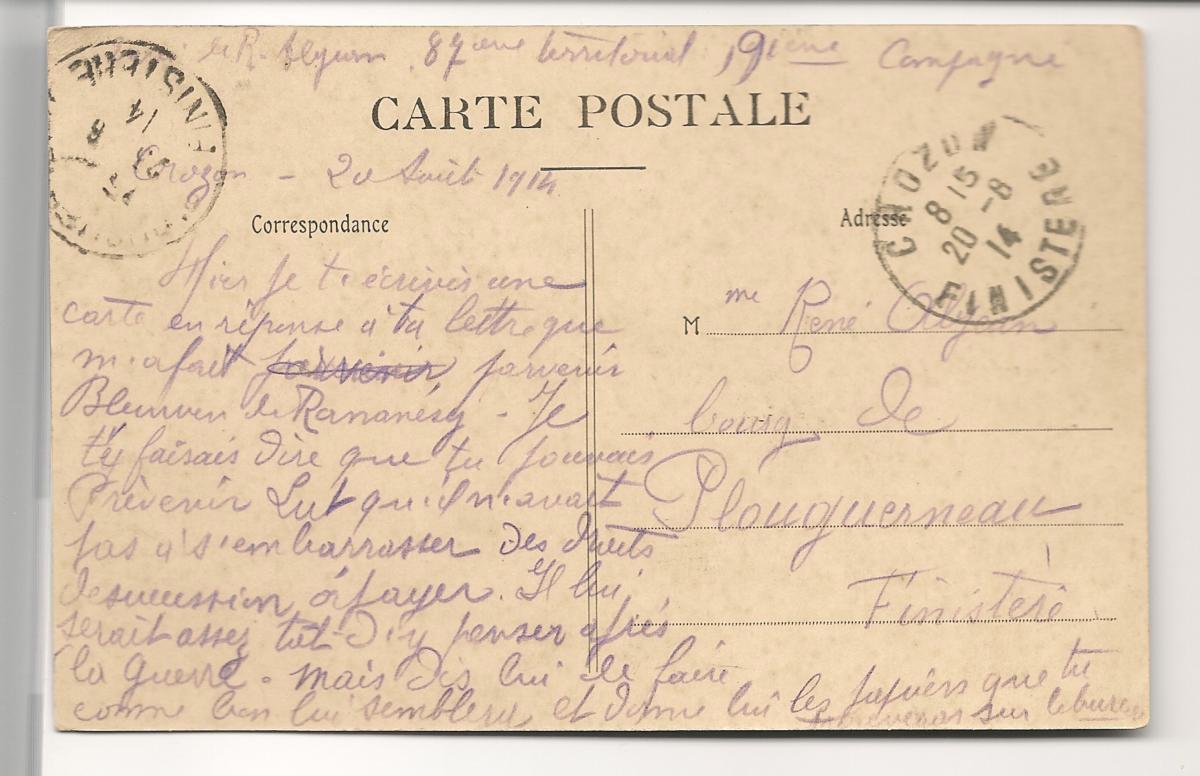 de R. 87eme territorial 19ième Campagne
CARTE POSTALE
FINISTERE
14
8
23
Crozon - 20 Août 1914
CROZON
8 15
20 -8
14
FINISTERE
Correspondance
Adresse
Hier je t'écrivis une
carte en réponse à ta lettre que
m'a fait parvenir parvenir
de - Je
t'y faisais dire que tu pouvais
Prévenir qu'il n'avait
pas à s'embarrasser des droits
de sucession à payer. Il lui
serait assez tôt d'y penser après
la guerre - mais dis lui de faire
comme bon lui semblera et donne lui les papiers que tu
sur le bureau
M me René
bourg de
Plouguerneau
Finistère